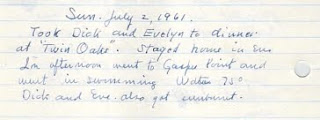 Sun. July 2, 1961.
Took Dick and Evelyn to dinner
at "Twin Oaks". Stayed home in Eve
In afternoon went to Gaspe Point and
went in swimming Water 75°
Dick and Eve. also got sunburnt.